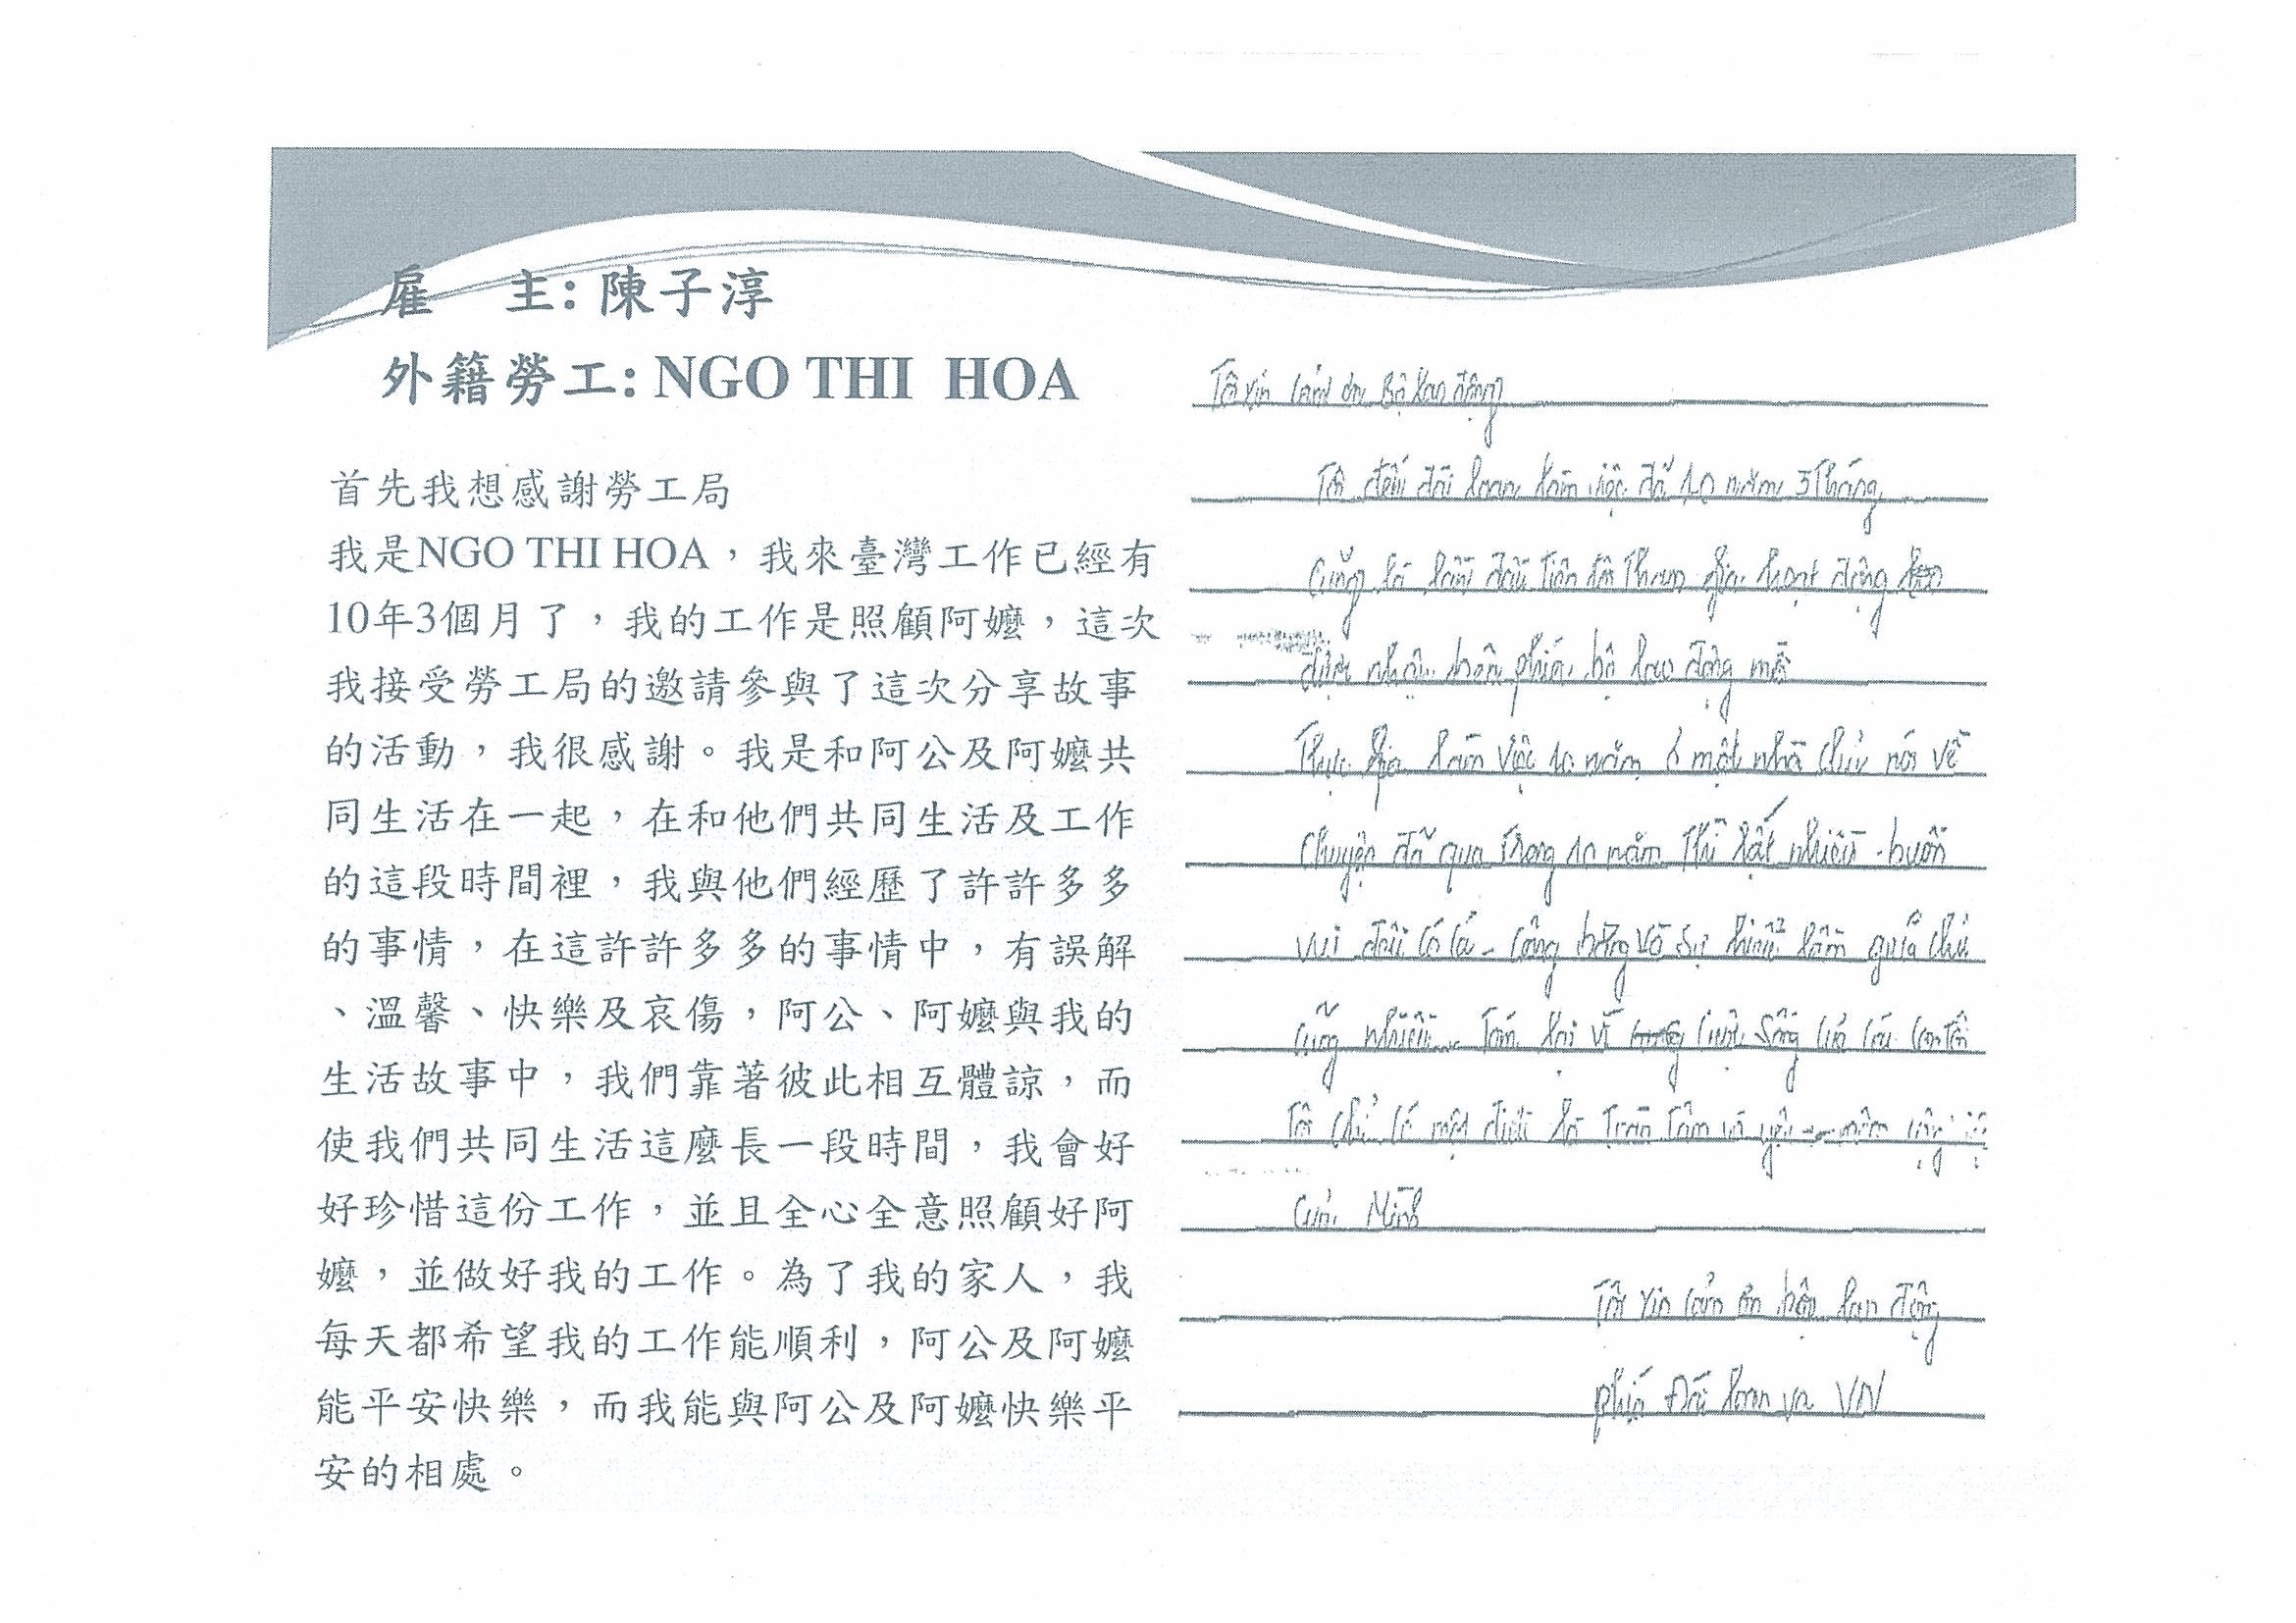 雇　主: 陳子淳
外籍勞工: NGO THI HOA
首先我想感謝勞工局
我是NGO THI HOA，我來臺灣工作已經有
10年3個月了，我的工作是照顧阿嬤，這次
我接受勞工局的邀請參與了這次分享故事
的活動，我很感謝。我是和阿公及阿嬤共
同生活在一起，在和他們共同生活及工作
的這段時間裡，我與他們經歷了許許多多
的事情，在這許許多多的事情中，有誤解
、溫馨、快樂及哀傷，阿公、阿嬤與我的
生活故事中，我們靠著彼此相互體諒，而
使我們共同生活這麼長一段時間，我會好
好珍惜這份工作，並且全心全意照顧好阿
嬤，並做好我的工作。為了我的家人，我
每天都希望我的工作能順利，阿公及阿嬤
能平安快樂，而我能與阿公及阿嬤快樂平
安的相處。
Tôi xin Bộ lao động
Tôi đến đài loan làm việc đã 10 năm 3 Tháng
Cũng là lần đầu Tiên tôi Tham gia hoạt động
được nhận bên phía bộ lao động
làm việc 10 năm ở một nhà chủ nói về
Chuyện đã qua Trong 10 năm Thì rất nhiều buồn
vui đều có cả công bằng và sự hiểu lầm giữa chủ
cũng nhiều Tóm lại vì cuộc sống của các con tôi
Tôi chỉ có một điều là Toàn Tâm và yêu
của Mình
Tôi xin cảm ơn bộ lao động
phía Đài loan và VN